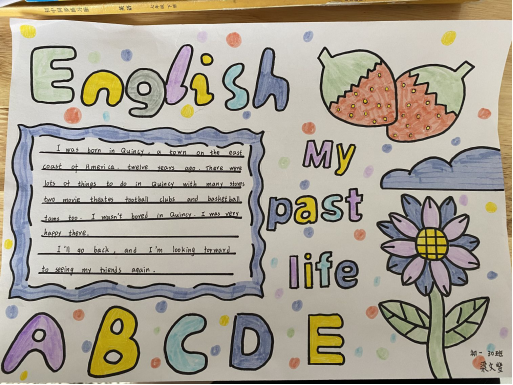 English
I was born in Quincy, a town on the east
coast of America twelve years ago. There were
lots of things to do in Quincy with many stores
two movie theates football clubs and basketball
tams too. I wasn't bored in Quincy. I was very
happy there.
I'll go back, and I'm looking forward
to seeing my friends again.
My
past
life
A B C D E
初一 30班